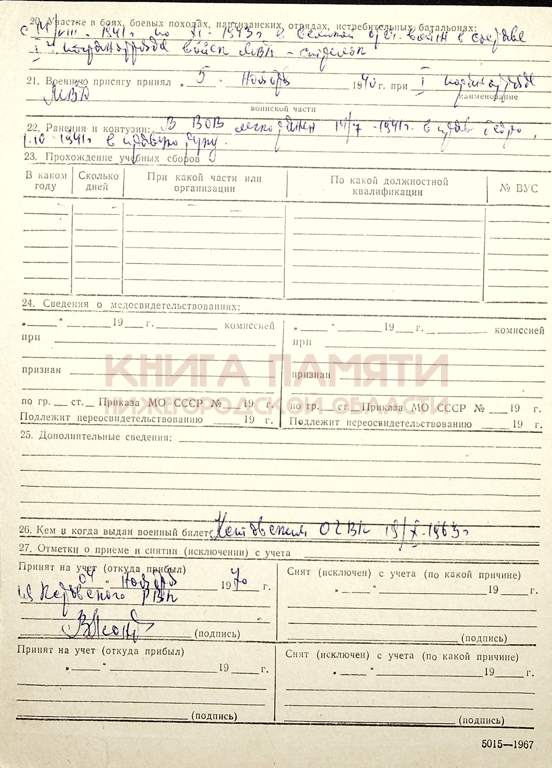 20. Участие в боях, боевых походах, партизанских отрядах, истребительных батальонах:
VIII - 1941 г. по XI - 1943 г. в
войск МВД - стрелок
21. Военную присягу принял „ 5 “ ноября 19 40 г. при I погранотряде
МВД наименование
воинской части
22. Ранения и контузии: В ВОВ легко ранен 14/7 - 1941 г. в
1.10 - 1941 г. в
23. Прохождение учебных сборов
В каком году
Сколько дней
При какой части или организации
По какой должностной квалификации
№ ВУС
24. Сведения о медосвидетельствованиях:
„ “ 19 г. комиссией „ “ 19 г. комиссией
при при
признан признан
КНИГА ПАМЯТИ
НИЖЕГОРОДСКОЙ ОБЛАСТИ
по гр. ст. Приказа МО СССР № 19 г. по гр. ст. Приказа МО СССР № 19 г.
Подлежит переосвидетельствованию 19 г. Подлежит переосвидетельствованию 19 г.
25. Дополнительные сведения:
26. Кем и когда выдан военный билет ОГВК 19/X-1963 г
27. Отметки о приеме и снятии (исключении) с учета
Принят на учет (откуда прибыл)
„ 04 “ ноября 19 70 г.
РВК
(подпись)
Снят (исключен) с учета (по какой причине)
„ “ 19 г.
(подпись)
Принят на учет (откуда прибыл)
„ “ 19 г.
(подпись)
Снят (исключен) с учета (по какой причине)
„ “ 19 г.
(подпись)
5015—1967